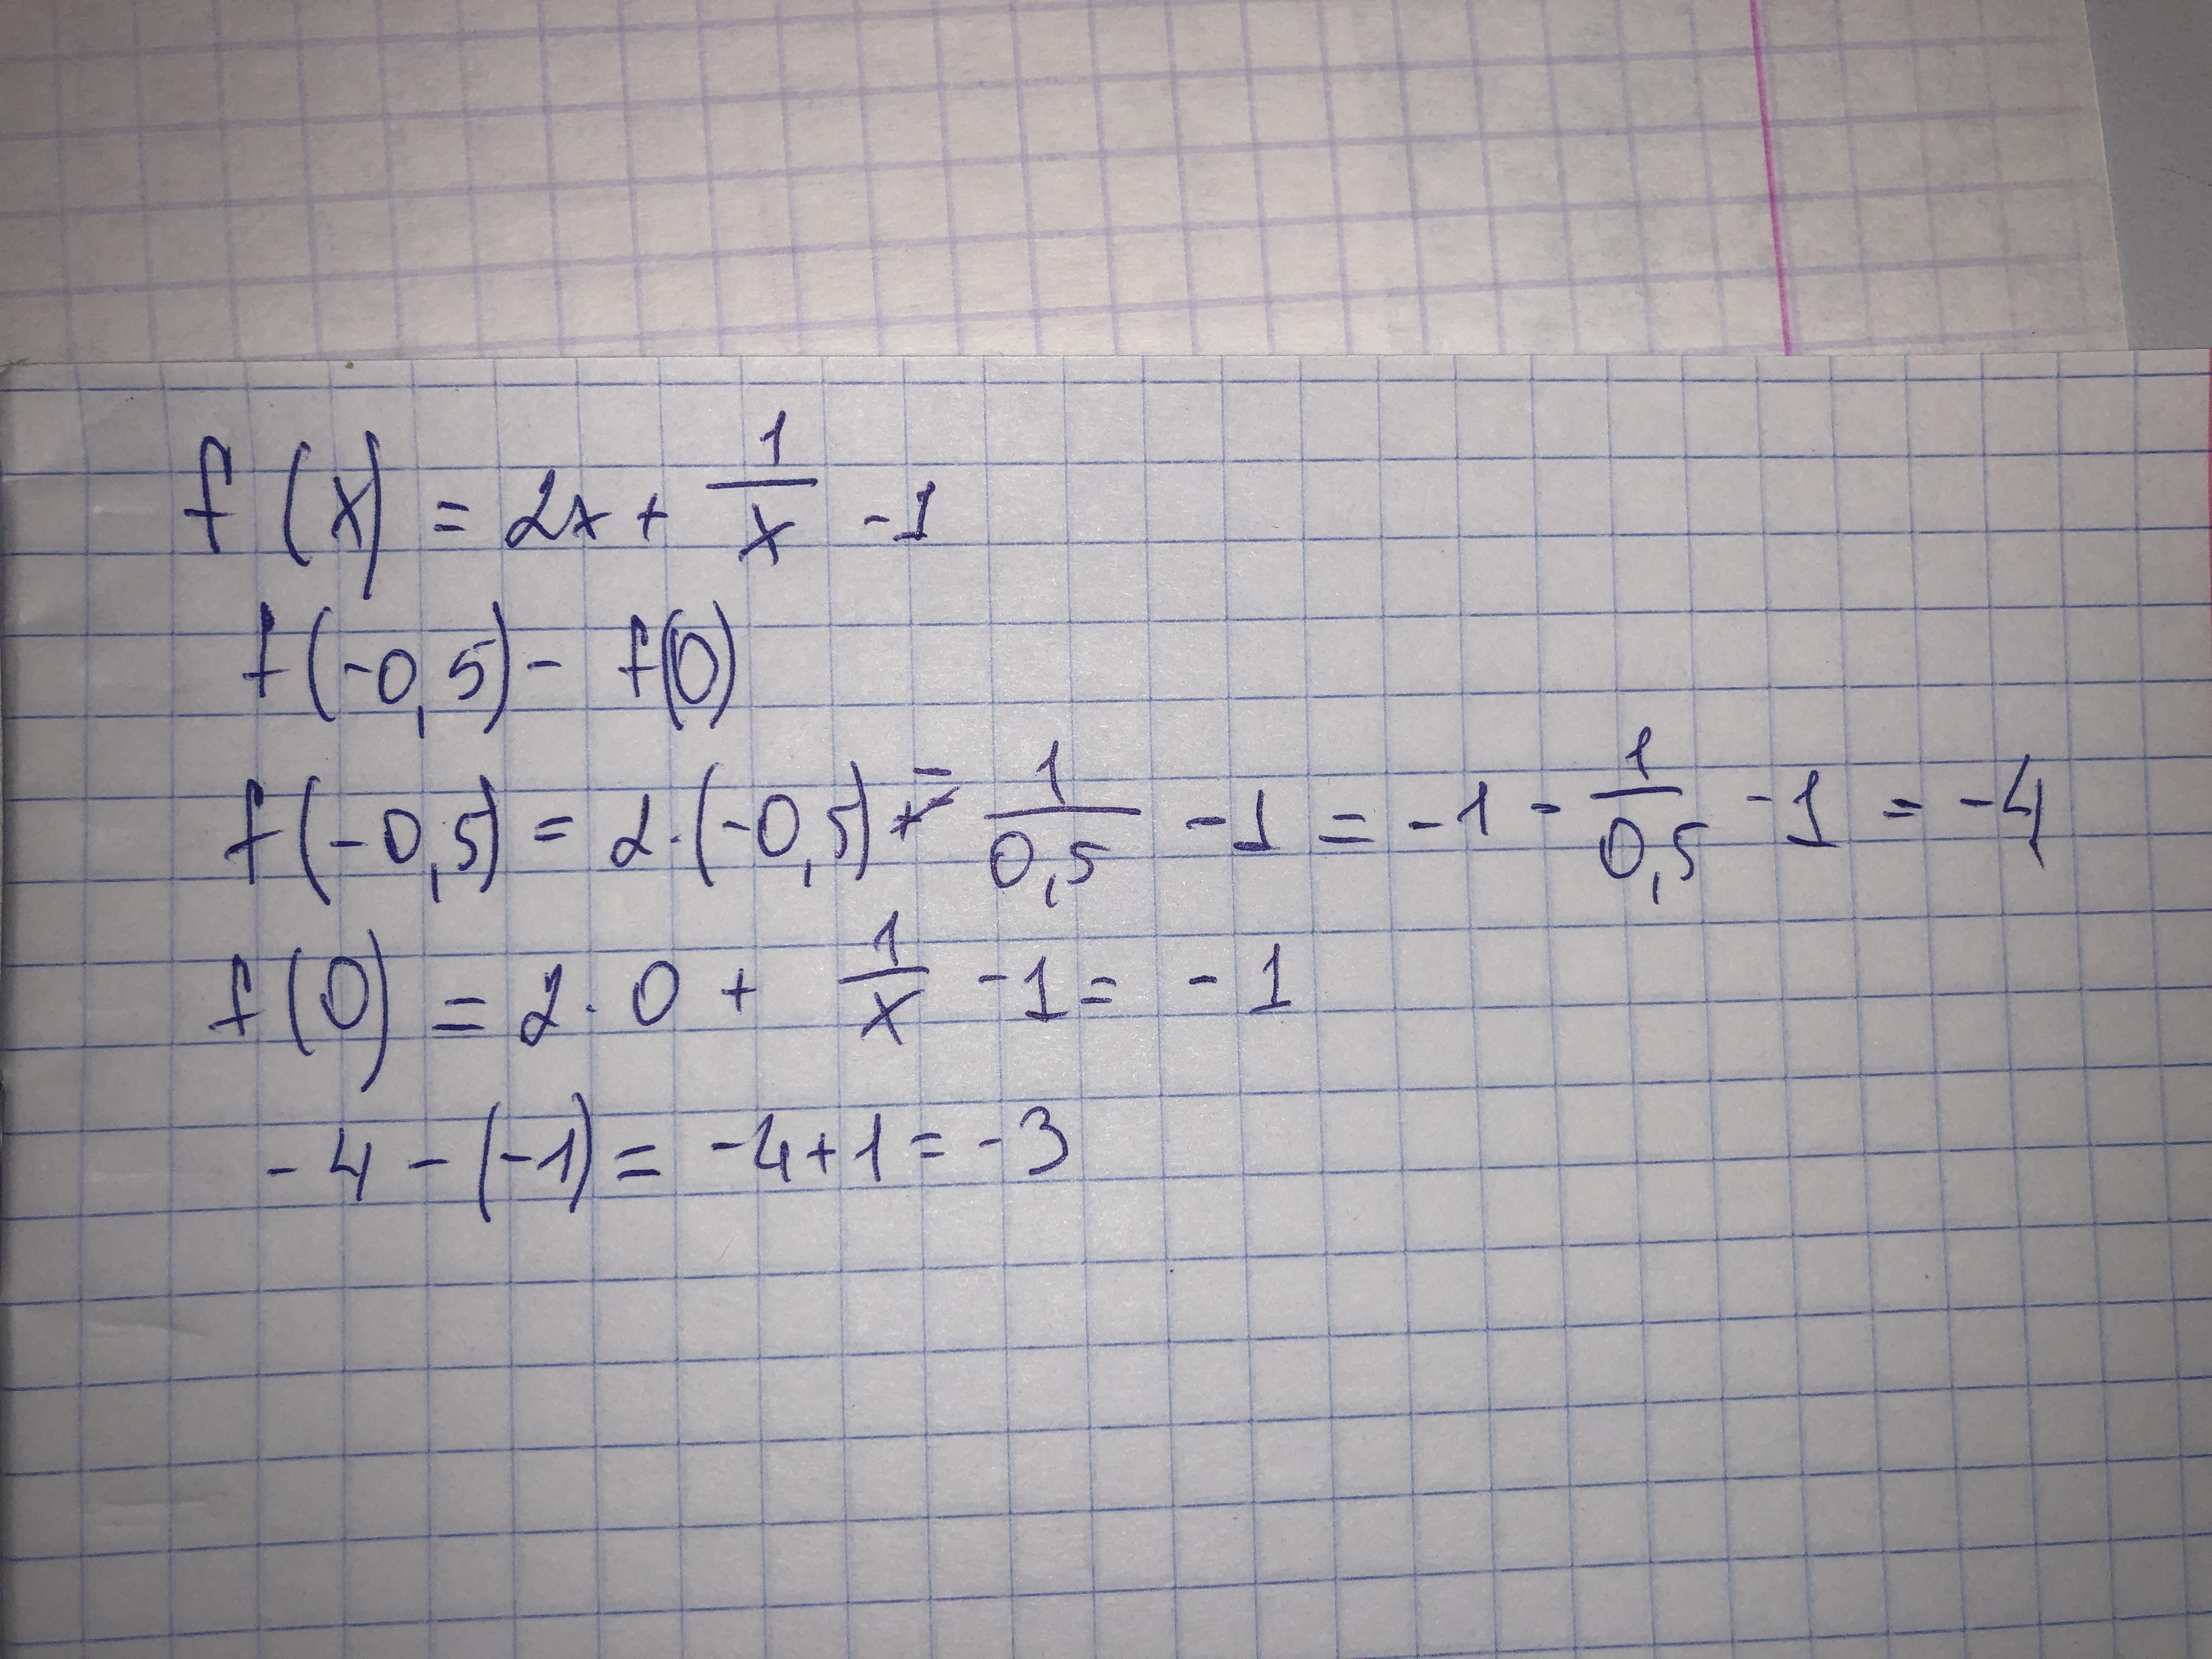 f(x) = 2x + 1/x - 1
f(-0,5) - f(0)
f(-0,5) = 2·(-0,5) - 1/0,5 - 1 = -1 - 1/0,5 - 1 = -4
f(0) = 2·0 + 1/x - 1 = -1
-4 - (-1) = -4+1 = -3